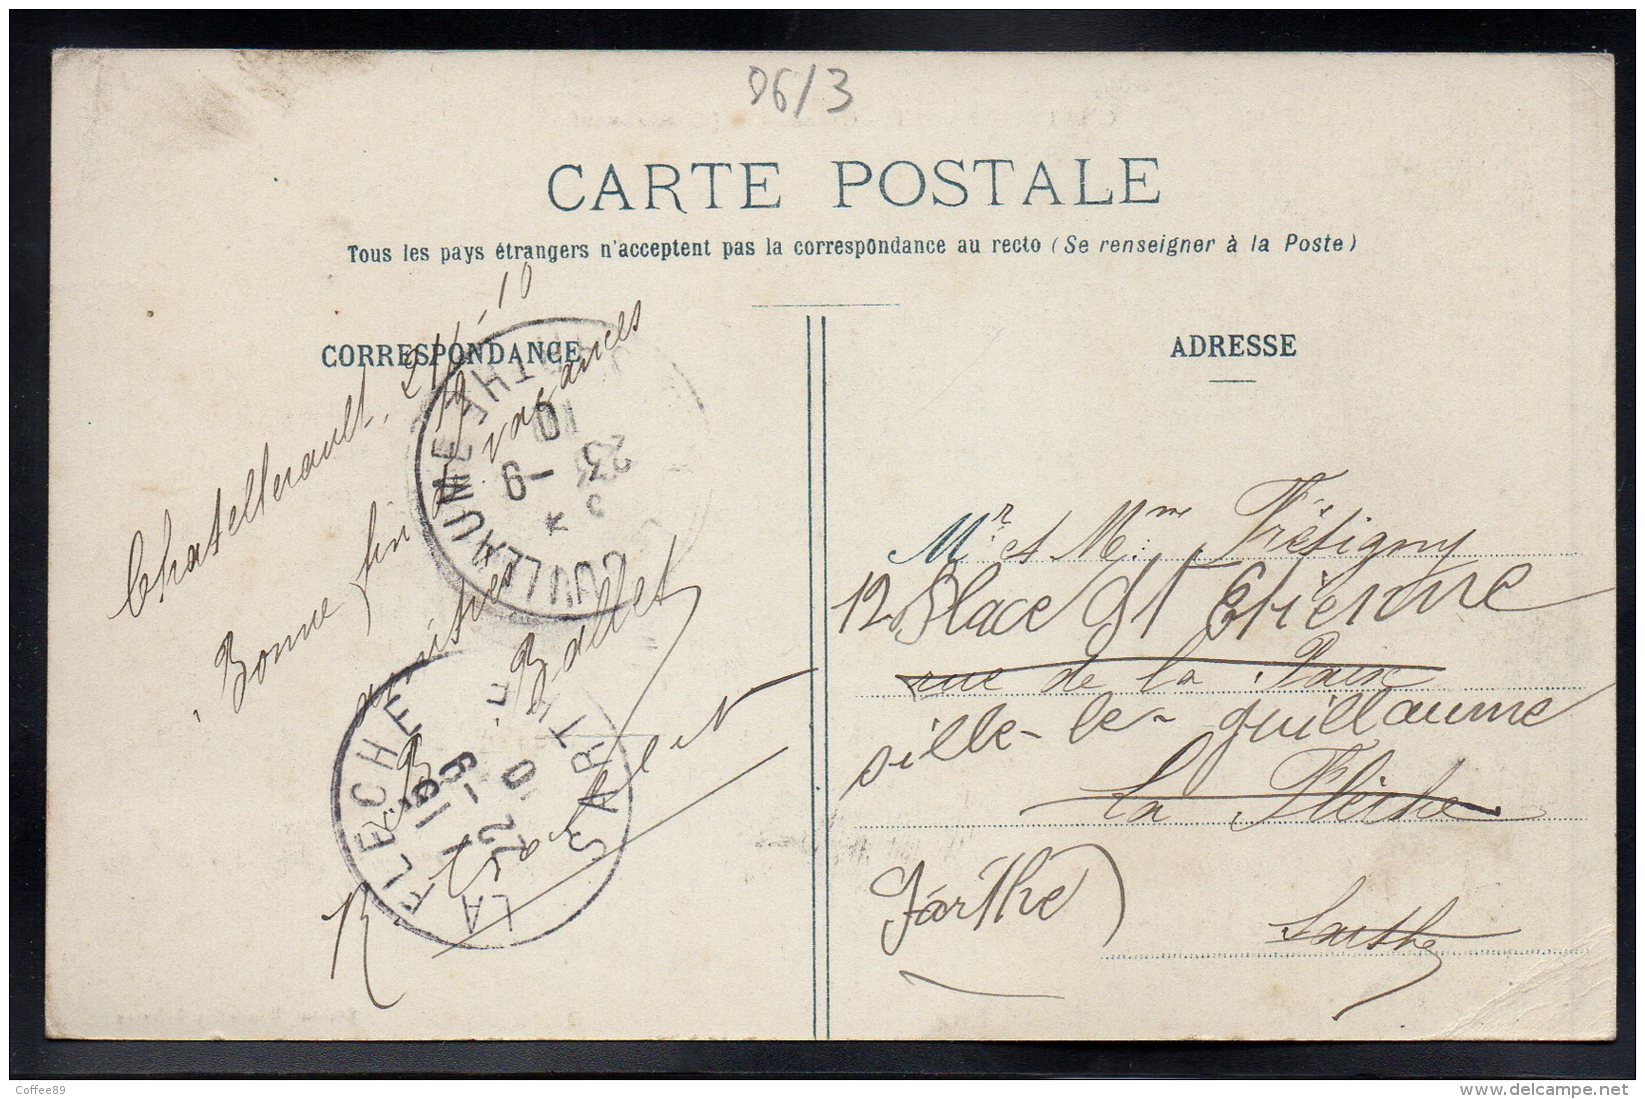 96/3
CARTE POSTALE
Tous les pays étrangers n'acceptent pas la correspondance au recto (Se renseigner à la Poste)
CORRESPONDANCE
Chatellerault, 21/9-10
Bonne fin de vacances
amitiés
B. Ballet
R.
GUILLAUME
SARTHE
23
9
10
LA FLECHE
SARTHE
22
9
10
ADRESSE
Mr. et Mme. Frétigny
12 Place St Etienne
rue de la Paix
sille-le-guillaume
La Flèche
Sarthe)
Sarthe
Coffee89
www.delcampe.net